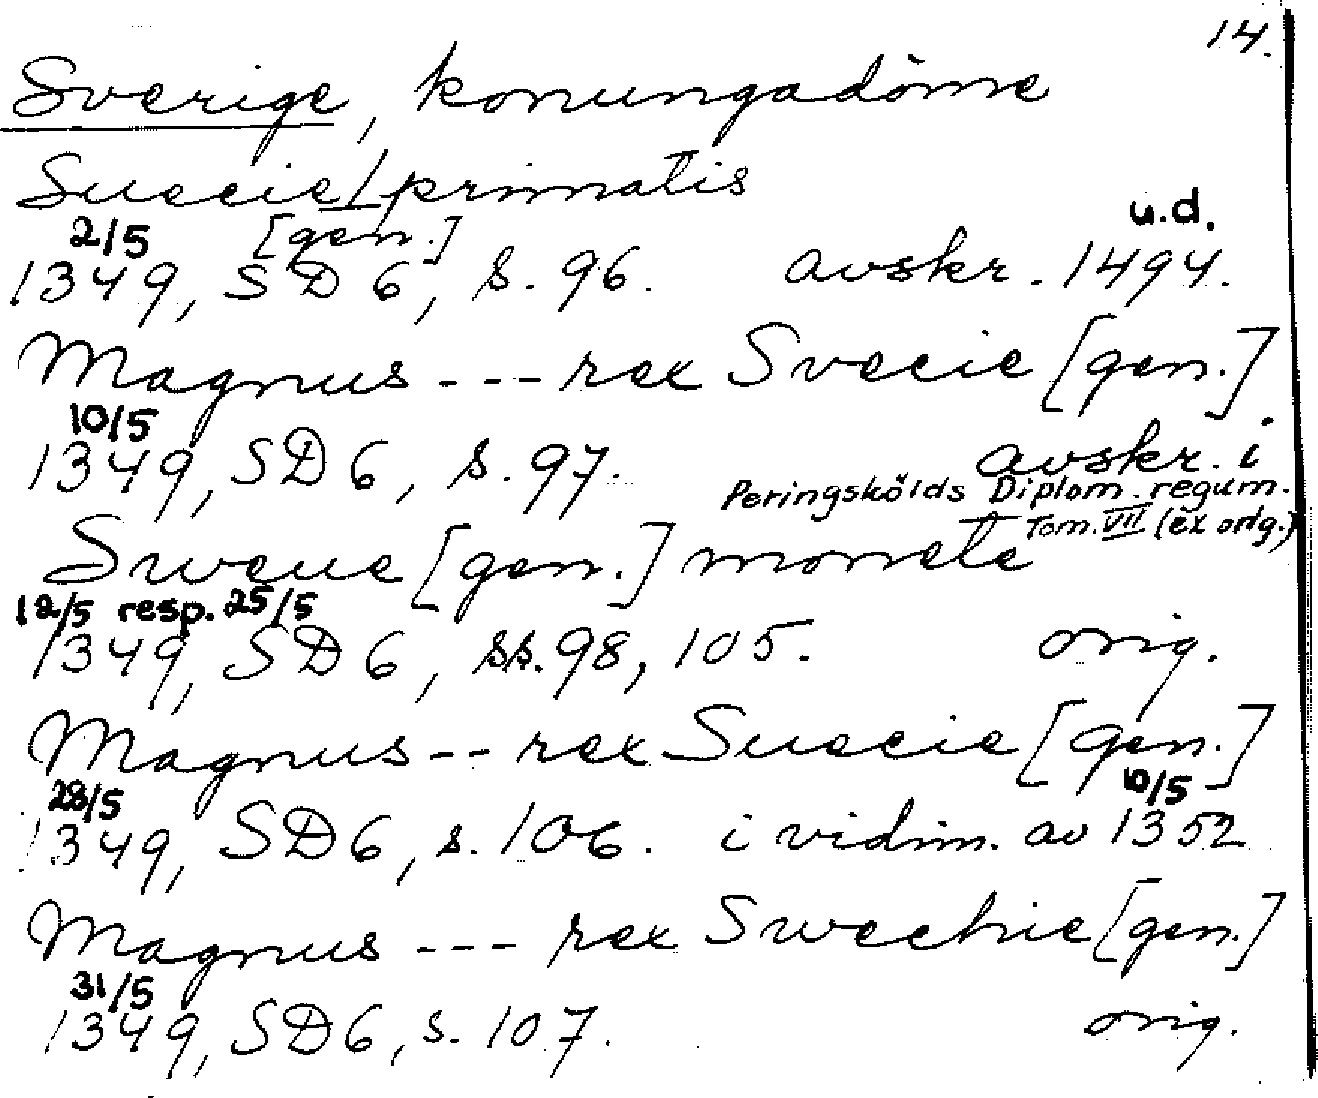 14.
Sverige, konungadöme
Suecie/primatis
[gen.]
2/5 u.d.
1349, SD 6, s. 96. avskr. 1494.
Magnus --- rex Svecie [gen.]
10/5
1349, SD 6, s. 97. avskr. i
Peringskölds Diplom. regum.
Tom. VII (ex orig.)
Sweue [gen.] monete
12/5 resp. 25/5
1349, SD 6, ss. 98, 105. orig.
Magnus -- rex Suecie [gen.]
28/5 10/5
1349, SD 6, s. 106. i vidim. av 1352
Magnus --- rex Swechie [gen.]
31/5
1349, SD 6, s. 107. orig.